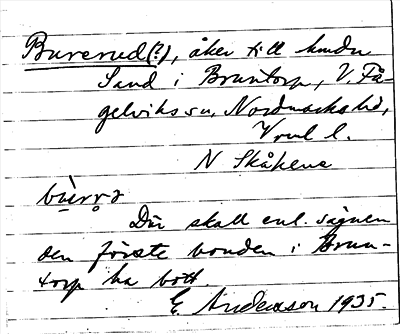 Burerud(?), åker till hmdn
Sand i Bruntorp, V. Få-
gelviks sn, Nordmarks hd,
Vrml l.
N Skåkene
bùrrə
Där skall enl. sägnen
den förste bonden i Brun-
torp ha bott.
E. Andersson 1935.